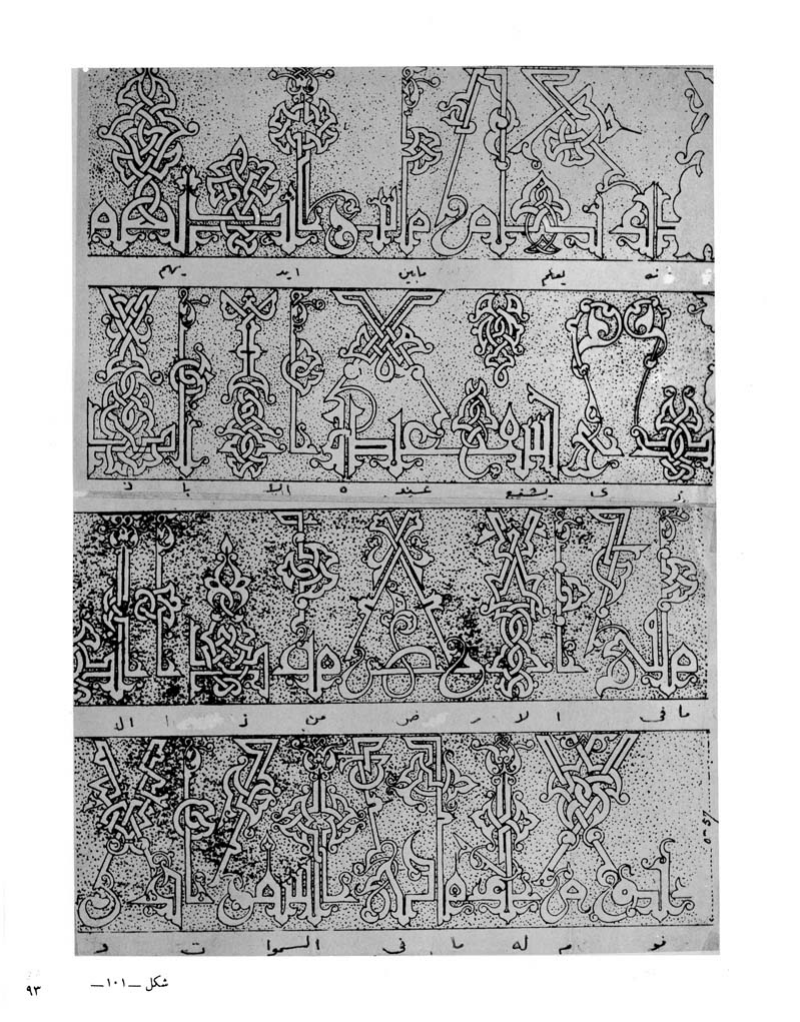 نه يعلم مابين ايد يهم
ذ ى يشفع عند ه الا با ذ
ما فى ا لا ر ض من ذ ا ال
نو م له ما فى السموا ت و
شكل _١٠١_
٩٣